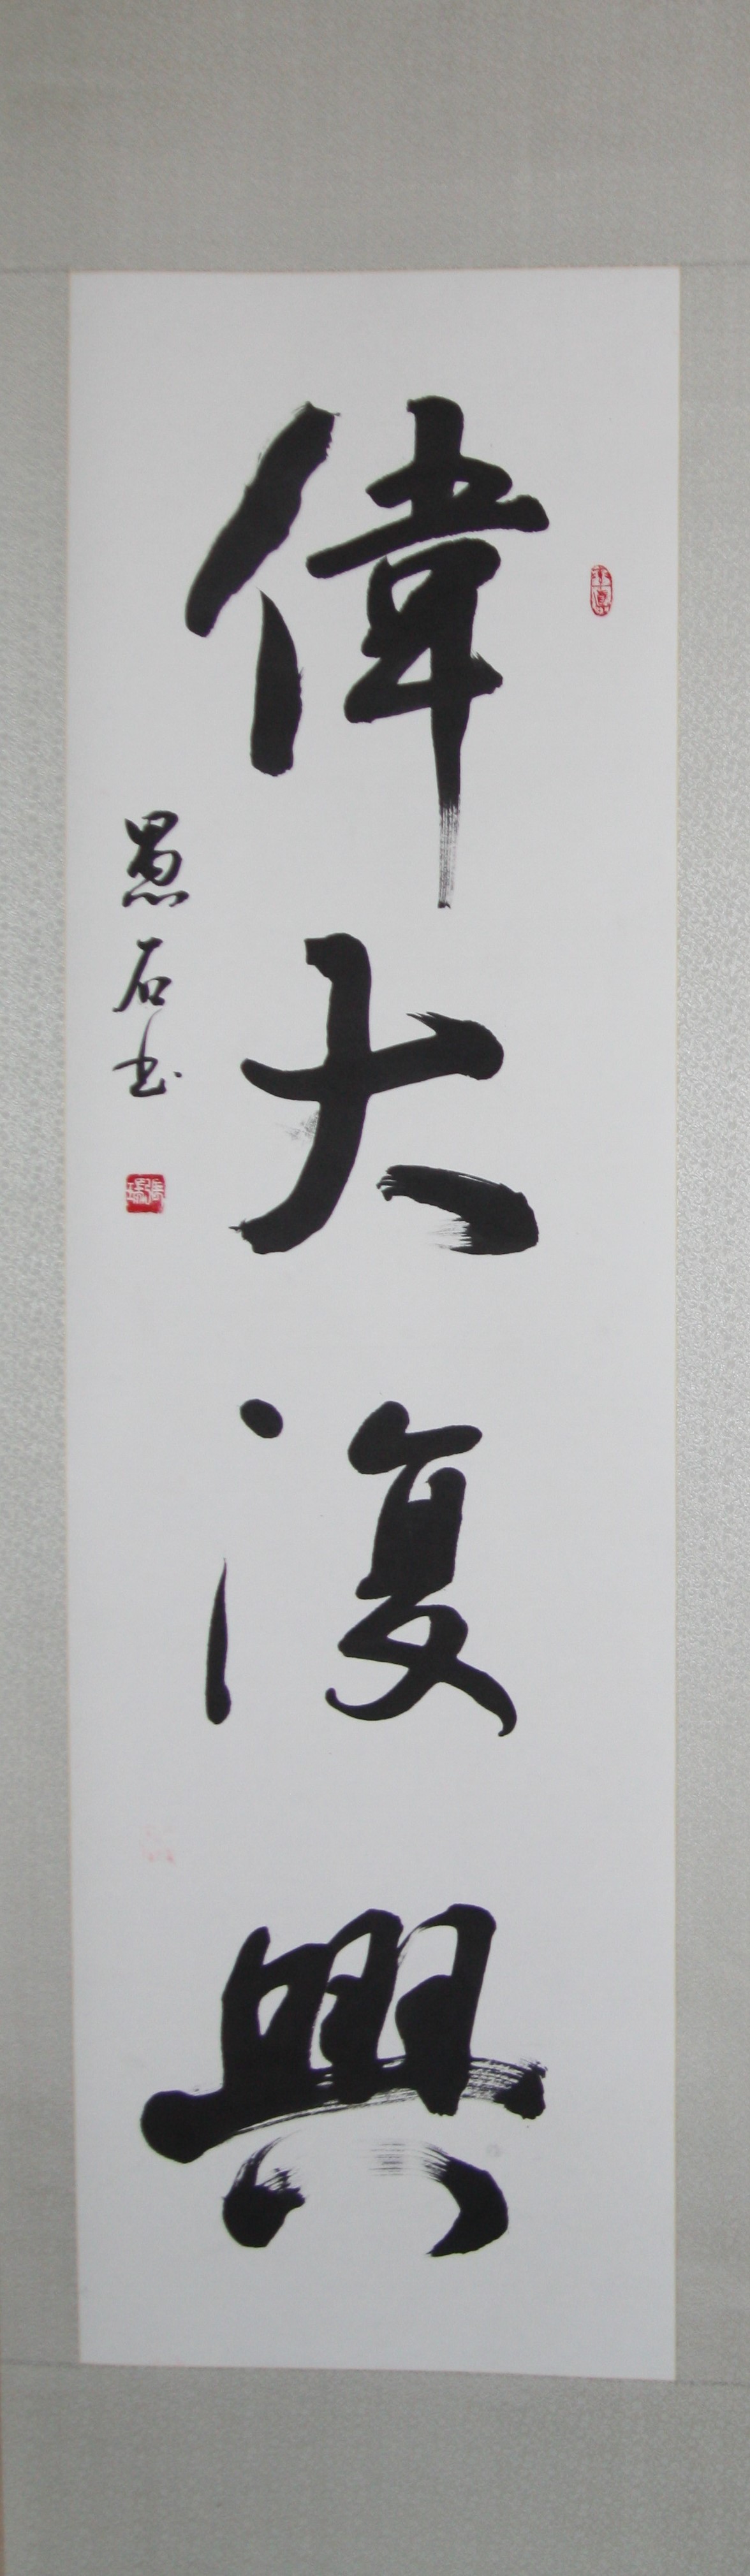 偉大復興
愚石书